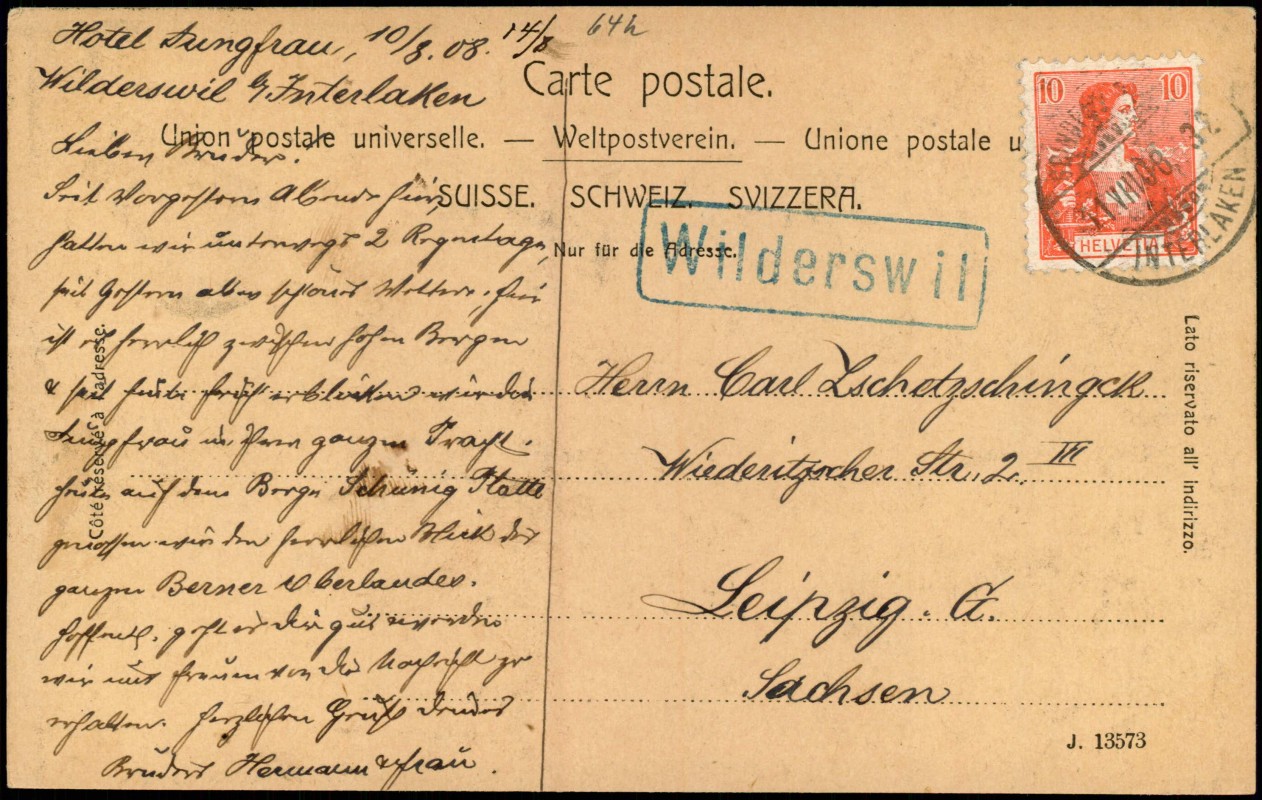 Hotel Jungfrau, 10/8.08. 14/8 64h
Wilderswil b/Interlaken
Carte postale.
Union postale universelle. — Weltpostverein. — Unione postale u
SUISSE. SCHWEIZ. SVIZZERA.
Nur für die Adresse.
Côté réservé à l'adresse.
Lato riservato all' indirizzo.
10 10
HELVETIA
VIII.08
INTERLAKEN
Wilderswil
Lieber Bruder.
Seit Vorgestern Abends hier,
hatten wir unterwegs 2 Regentage,
seit Gestern aber schönes Wetter, hier
ist es herrlich zwischen hohen Bergen
& seit heute früh erblicken wir die
Jungfrau in ihrer ganzen Pracht.
Heute auf dem Berge Schünig Platte
genossen wir den herrlichen Blick des
ganzen Berner Oberlandes.
Hoffentl. geht es Dir gut & werden
wir uns freuen von Dir Nachricht zu
erhalten. Herzlichen Gruß Deines
Bruders Hermann & Frau.
Herrn Carl Zschetzschingck
Wiederitzscher Str. 2. III
Leipzig. G.
Sachsen
J. 13573